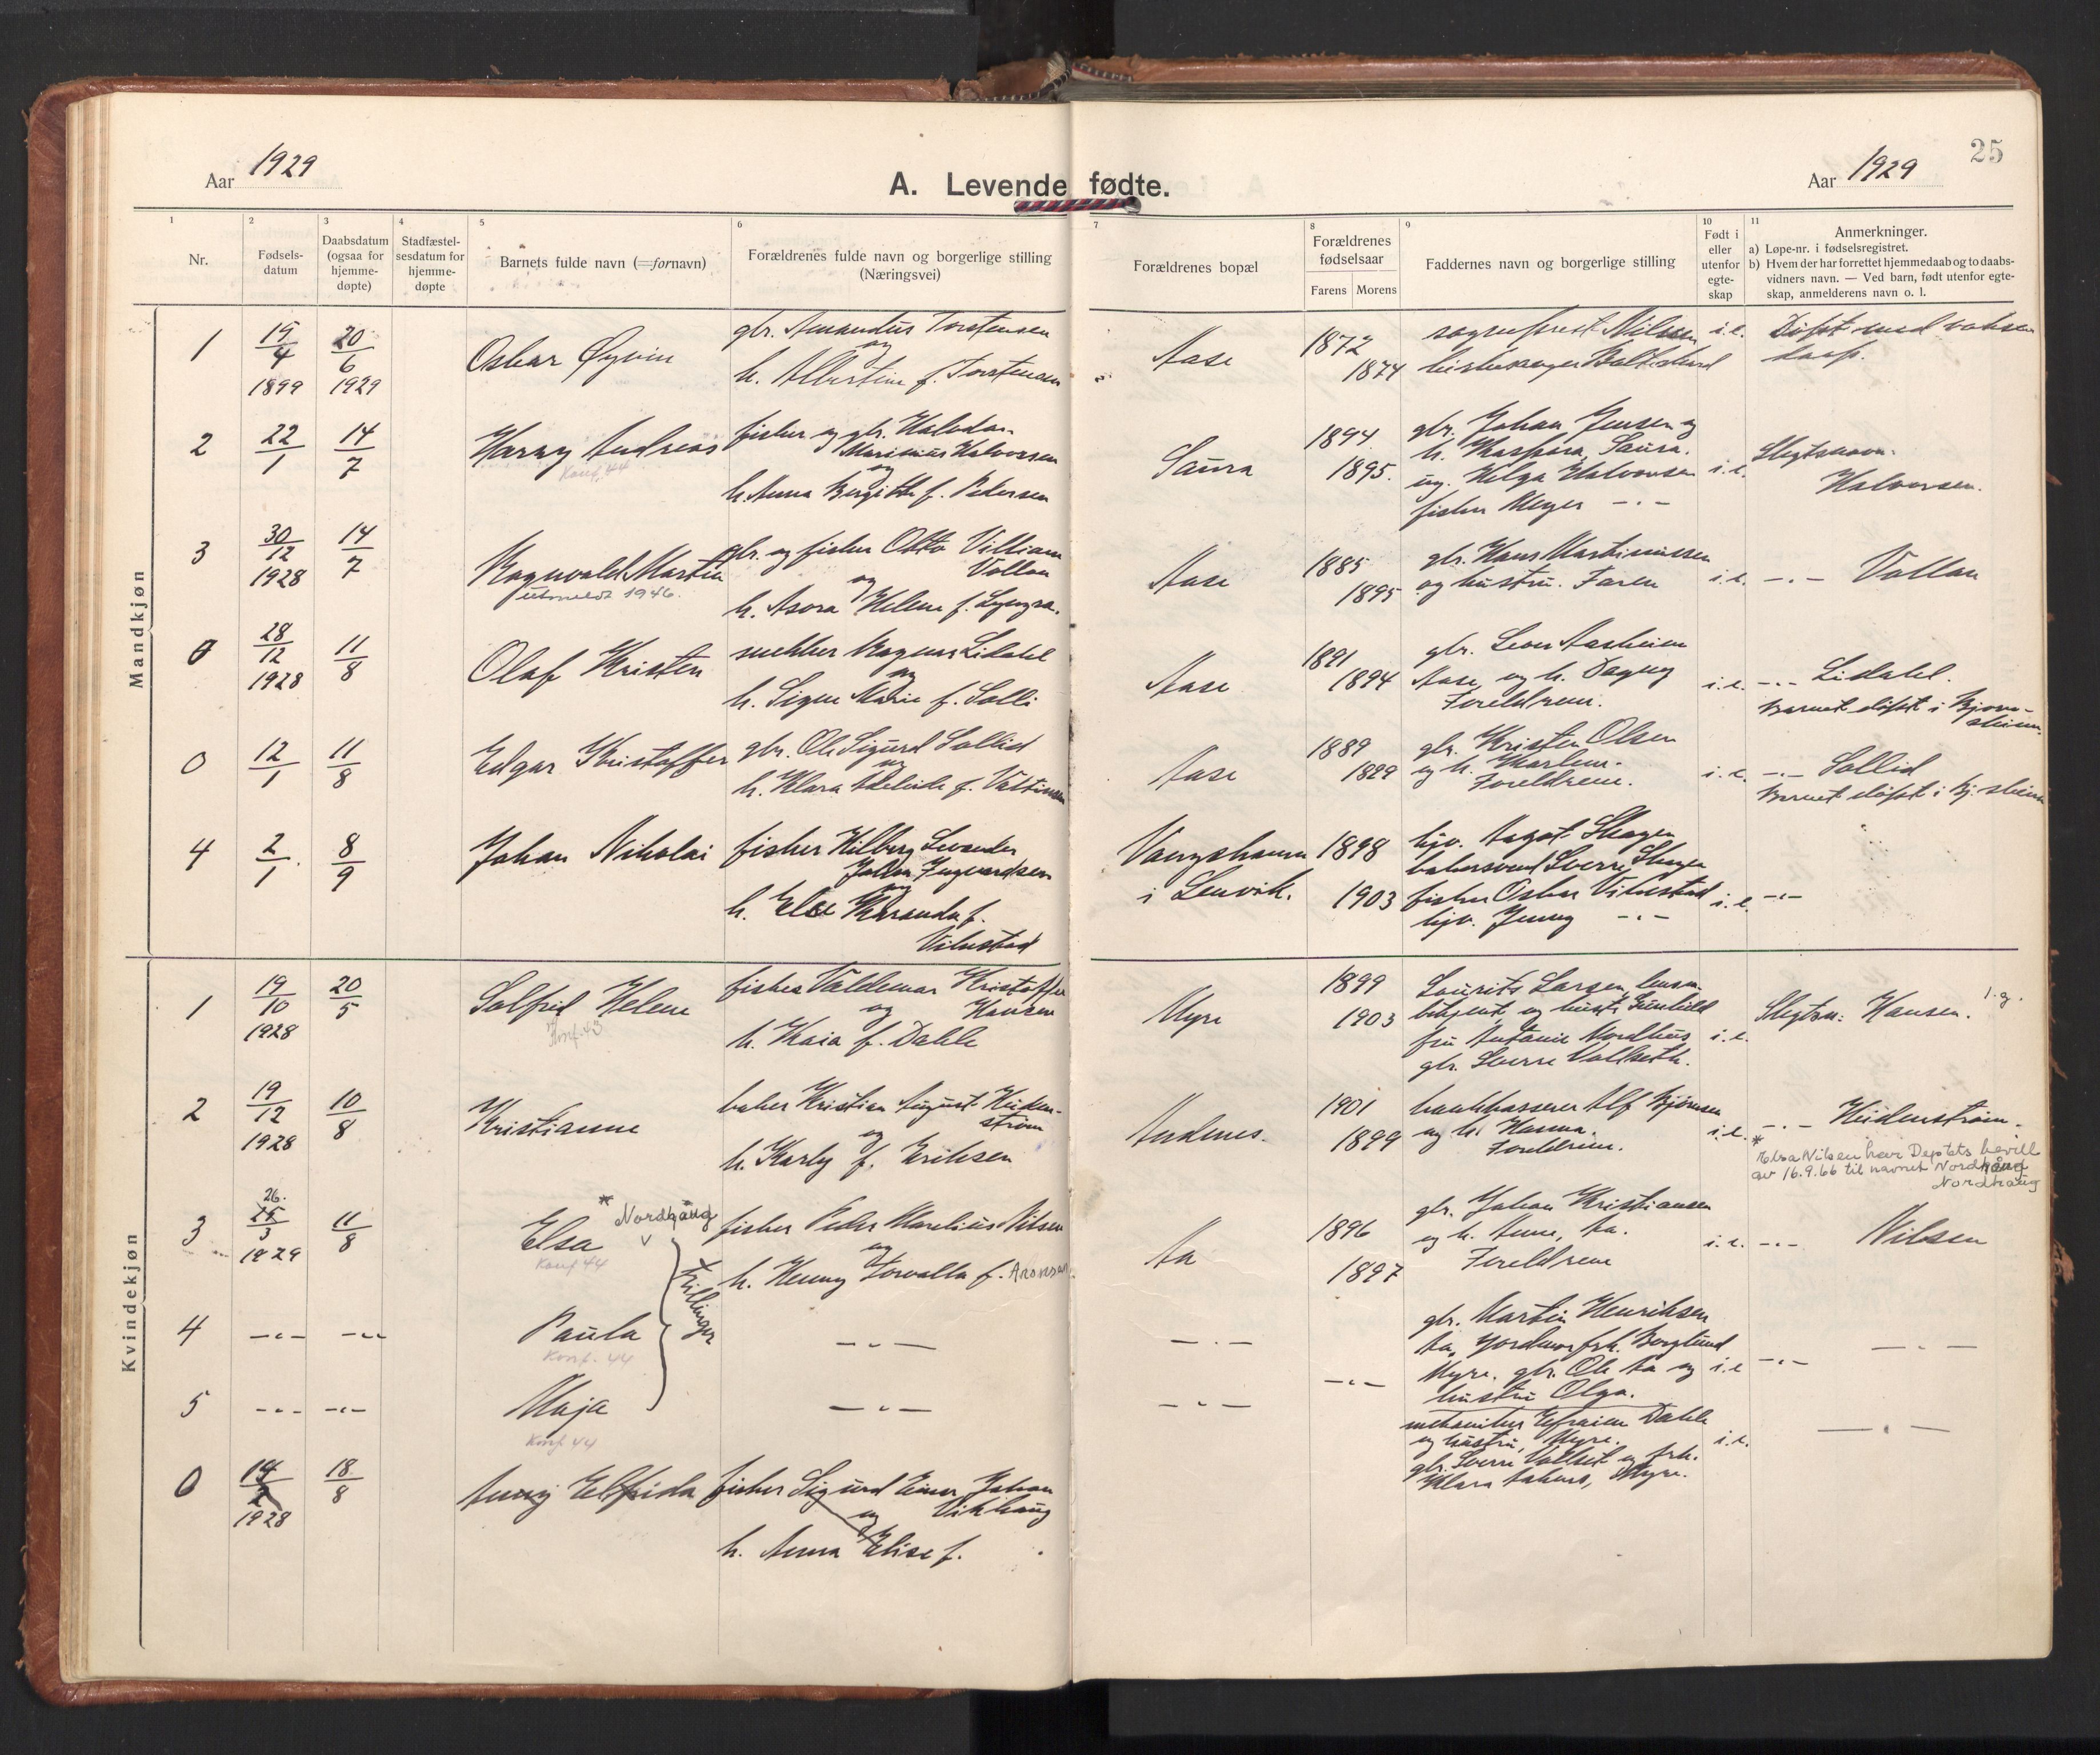 Aar 1929
A. Levende fødte.
Aar 1929
25
1
2
3
4
5
6
7
8
9
10
11
Nr.
Fødsels-
datum
Daabsdatum
(ogsaa for
hjemme-
døpte)
Stadfæstel-
sesdatum for
hjemme-
døpte
Barnets fulde navn (=fornavn)
Forældrenes fulde navn og borgerlige stilling
(Næringsvei)
Forældrenes bopæl
Forældrenes
fødselsaar
Farens Morens
Faddernes navn og borgerlige stilling
Født i
eller
utenfor
egte-
skap
Anmerkninger.
a) Løpe-nr. i fødselsregistret.
b) Hvem der har forrettet hjemmedaab og to daabs-
vidners navn. — Ved barn, født utenfor egte-
skap, anmelderens navn o. l.
Mandkjøn
1
15/4 1899
20/6 1929
Oskar Øyvin
gbr. Amandus Torstensen
og
h. Albertine f. Torstensen
Aase
1872
1874
sogneprest Nilssen
i.e.
Døpt med voksen
daap.
2
22/1
14/7
Harry Andreas
Konf. 44
fisker og gbr. Halvdan
Marinius Halvorsen
og
h. Anna Bergitte f. Pedersen
Saura
1894
1895.
gbr. Johan Jensen og
h. Kaspara, Saura.
ug. Helga Halvorsen
fisker Meyer -"-
i.e.
Slegtsnavn:
Halvorsen.
3
30/12 1928
14/7
Ragnvald Martin
utmeldt 1946.
gbr. og fisker Otto Villiam
Vollan
og
h. Asora Helene f.
Aase
1885
1895
gbr. Hans Martinussen
og hustru. Faren
i.e.
-"- Vollan
0
28/12 1928
11/8
Olaf Kristen
snekker Magnus Lidahl
og
h. Signe Marie f. Solli
Aase
1891
1894
gbr. Leon Aasheim
Aase, og h. Dagny
Foreldrene.
i.e.
-"- Lidahl.
Barnet døpt i Bjørn-
skinn.
0
12/1
11/8
Edgar Kristoffer
gbr. Ole Sigurd Sollid
og
h. Klara Adelinde f.
Aase
1889
1899
gbr. Kristen Olsen
og h. Marlene.
Foreldrene.
i.e.
-"- Sollid
Barnet døpt i Bj. skinn
4
2/1.
8/9
Johan Nikolai
fisker Hilberg Levander
Johan Ingvardsen
og
h. Else f.
Vikustad
Vangshamn
i Lenvik.
1898
1903
hjv. Aagot Skogen
bakersvend Sverre Skogen
fisker Oskar Vikustad
hjv. Jenny -"-
i.e.
-"-
Kvindekjøn
1
19/10 1928
20/5
Solfrid Helene
Konf. 43
fisker Valdemar Kristoffer
og Hansen
h. Kaia f. Dahle
Myre
1899
1903
Laurits Larsen, lensm.
betjent, og hustr. Gunhild
fru Antonie Nordhus
gbr. Sverre Vollseth.
i.e.
Slegtsn: Hansen.
1.g.
2
19/12 1928
10/8
Kristianne
baker Kristian August Heiden-
strøm
og
h. Karly f. Eriksen
Andenes.
1901
1899
bankkasserer Alf Bjørnsen
og h. Hanna.
Foreldrene.
i.e.
-"- Heidenstrøm.
* Elsa Nilsen har Deptets bevill
av 16.9.66 til navnet Nordhaug
Nordhaug
3
26.
25/3 1929
11/8
* Nordhaug
Elsa
Konf 44
fisker Peder Marelius Nilsen
og
h. Henny Torvalla f. Aronsen.
Aa
1896
1897
gbr. Johan Kristiansen
og h. Anne, Aa.
Foreldrene
i.e.
-"- Nilsen
trillinger
4
-"-
-"-
Paula
Konf. 44
-"-
-"-
-"-
gbr. Martin Henriksen
Aa, jordmor frk. Berglund
Myre. gbr. Ole Aa og
hustru Olga.
i.e
-"-
-"-
5
-"-
-"-
Maja
Konf 44
-"-
-"-
mekaniker Efraim Dahle
og hustru, Myre.
gbr. Sverre Vollset og frk.
Klara Aaknes, Myre.
i.e.
-"-
0
14/2 1928
18/8
Anny Elfrida
fisker Sigurd Einar Johan
og Vikhaug
h. Anna Elise f.